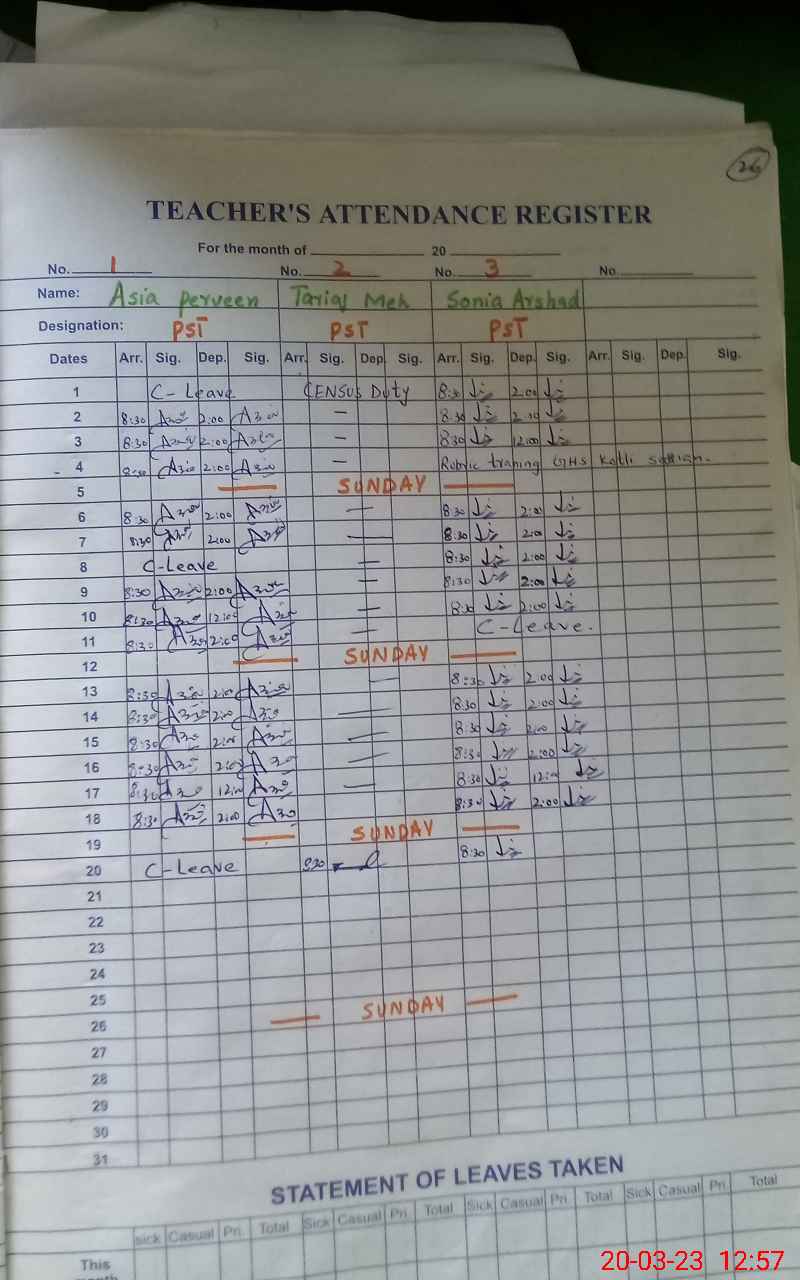 26
TEACHER'S ATTENDANCE REGISTER
For the month of 20
No. 1 No. 2 No. 3 No.
Name: Asia Perveen Tariq Meh Sonia Arshad
Designation: PST PST PST
Dates Arr. Sig. Dep. Sig. Arr. Sig. Dep. Sig. Arr. Sig. Dep. Sig. Arr. Sig. Dep. Sig.
1 C-Leave CENSUS Duty 8:30 2:00
2 8:30 2:00 — 8:30 2:00
3 8:30 2:00 — 8:30 12:00
4 8:30 2:00 — training GHS Kotli
5 SUNDAY
6 8:30 2:00 — 8:30 2:00
7 8:30 2:00 — 8:30 2:00
8 C-Leave — 8:30 2:00
9 8:30 2:00 — 8:30 2:00
10 8:30 12:00 — 8:30 2:00
11 8:30 2:00 — C-Leave.
12 SUNDAY
13 8:30 2:00 — 8:30 2:00
14 8:30 2:00 — 8:30 2:00
15 8:30 2:00 — 8:30 2:00
16 8:30 2:00 — 8:30 2:00
17 8:30 12:00 — 8:30 12:00
18 8:30 2:00 8:30 2:00
19 SUNDAY
20 C-Leave 8:30
21
22
23
24
25
26 SUNDAY
27
28
29
30
31
STATEMENT OF LEAVES TAKEN
Sick Casual Pri. Total Sick Casual Pri. Total Sick Casual Pri. Total Sick Casual Pri. Total
This
month
20-03-23 12:57